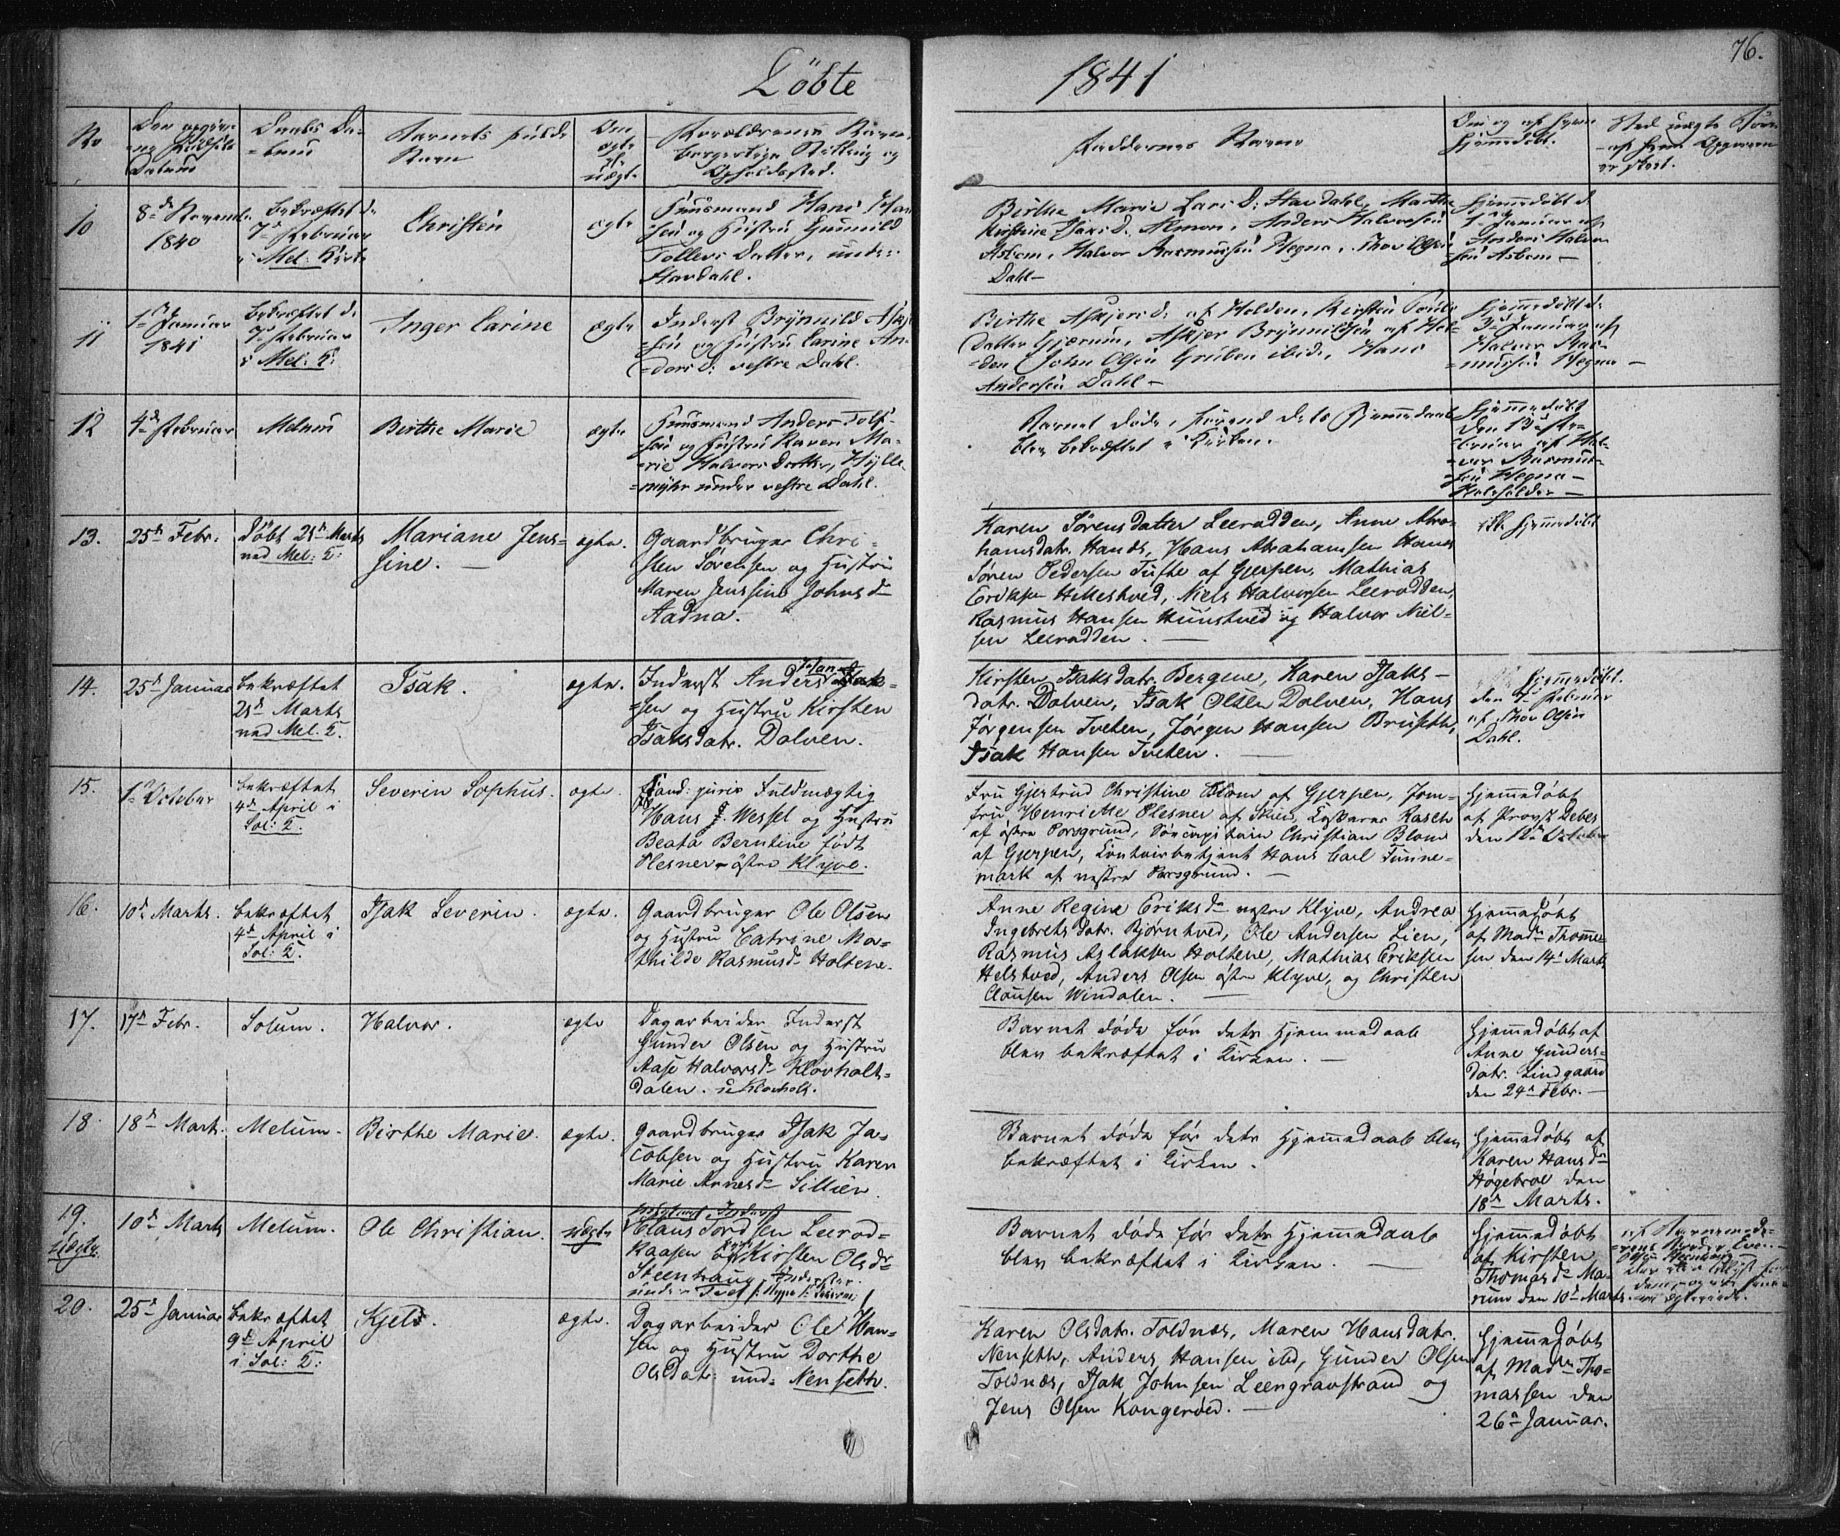 76.
Döbte 1841
No
Daabs Da-
tum
Barnets fulde
Navn
Om
ægte
el.
uægte
Forældrenes Navn,
borgerlige Stilling og
Opholdssted.
Faddernes Navne
Om og af hvem
hjemdøbt.
10
8de Novemb.
1840
bekræftet d.
7de Februar
i Mel: Kirke
Christen
ægte
Huusmand Hans
sen og Hustru Gunnild
Tollevs Datter, under
Stavdahl.
Birthe Marie Lars D. Stavdahl, Marthe
Kirstine Isaks D. Anders Halvorsen
Asbom, Halvor Rasmussen Hegna, Thor Olsen
Dahl—
Hjemmedøbt d.
Januar af
Anders Halvor-
sen Asbom —
11
1ste Januar
1841
bekræftet d.
7de Februar
i Mel: K:
Inger Carine
ægte
Inderst Brynnild Askjer-
sen og Hustru Carine An-
ders D. vestre Dahl.
Birthe Askjers D. af Holden, Kirsten Pouls
Datter Gjærum, Askjer Brynnildsen af Hol-
den, John Olsen Gruben ibid., Hans
Andersen Dahl —
Hjemmedøbt d.
3die Januar af
Halvor Ras-
mussen Hegna —
12
4de Februar
Melum
Birthe Marie
ægte
Huusmand Anders Tolf-
sen og Hustru Karen Ma-
rie Halvors Datter, Hylle-
myhr under vestre Dahl.
Barnet døde, forend dets Hjemmedaab
blev bekræftet i Kirken.
Hjemmedøbt
den 13de Fe-
bruar af Hal-
vor Rasmus-
sen Hegna —
Skoleholder —
13.
25de Febr.
døbt 21de Marts
ved Mel: K:
Mariane Jens-
sine. —
ægte.
Gaardbruger Chri-
sten Sørensen og Hustru
Maren Jenssine Johns d.
Aadna.
Karen Sørensdatter Leeradden, Anne Abra-
hamsdatr. Hanes, Hans Abrahamsen Hanes
Søren Pedersen Tufte af Gjerpen, Mathias
Eriksen Helestved, Niels Halvorsen Leeradden,
Rasmus Hansen Kuunstved og Halvor Niel-
sen Leeradden. —
ikke hjemmedøbt
14.
25de Januar
bekræftet
21de Marts
ved Mel. K.
Isak.
ægte.
Inderst Anders Han-
sen og Hustru Kirsten
Isaksdatr. Dalven.
Kirsten Isaksdatr. Bergene, Karen Isaks-
datr. Dalven, Isak Olsen Dalven, Hans
Jørgensen Tveten, Jørgen Hansen Bruseth,
Isak Hansen Tveten. —
Hjemmedøbt
den 4de Februar
af Thor Olsen
Dahl.
15.
1ste October
bekræftet
4de April i
Sol: K.
Severin Sophus.
ægte.
Cand: juris Fuldmægtig
Hans J. Wessel og Hustru
Beata Berntine født
Plesner — østre Klyve.
Fru Gjertrud Christine Blom af Gjerpen, Jom-
fru Henriette Plesner af Skien, Rasch
af østre Porsgrund, Søecapitain Christian Blom
af Gjerpen, Contoirbetjent Hans Carl Tunne-
mark af vestre Porsgrund. —
hjemmedøbt
af Provst Debes
den October
16.
10de Marts.
bekræftet
4de April i
Sol: K.
Isak Severin.
ægte.
Gaardbruger Ole Olsen
og Hustru Catrine Ma-
thilde Rasmusd. Holtene.
Anne Regine Eriksd. vestre Klyve, Andrea
Ingebretsdatr. Bjørntved, Ole Andersen Lien,
Rasmus Aslaksen Holtene, Mathias Eriksen
Helstved, Anders Olsen østre Klyve, og Christen
Clausen Windalen. —
hjemmedøbt
af Madm. Thomme-
sen den 14de Marts
17.
17de Febr.
Solum.
Halvor.
ægte
Dagarbeider Inderst
Gunder Olsen og Hustru
Aase Halvorsd. Klovholt-
dalen. u. Klovholt.
Barnet døde før dets Hjemmedaab
blev bekræftet i Kirken. —
hjemmedøbt af
Anne Gunders-
datr. Lindgaard
den 24de Febr. —
18.
18de Mart.
Melum.
Birthe Marie.
ægte.
Gaardbruger Isak Ja-
cobsen og Hustru Karen
Marie Arnesd. Sillien.
Barnet døde før dets Hjemmedaab blev
bekræftet i Kirken.
hjemmedøbt af
Karen Hans d.
Høgebroe den
18de Marts.
19.
uægte.
10de Marts
Melum.
Ole Christian.
uægte
Inderst
Claus Tordsen Leerod-
kaasen og Kirsten Olsdr.
Steenhaug
under Tvet
Barnet døde før dets Hjemmedaab
blev bekræftet i Kirken. —
hjemmedøbt
af Kirsten
Thomasd. Ma-
rum den 10de Marts.
20.
25de Januar
bekræftet
9de April
i Sol: K:
Kjeld.
ægte.
Dagarbeider Ole Han-
sen og Hustru Dorthe
Olsdatr. und. Nenseth.
Karen Olsdatr. Toldnæs, Maren Hansdatr.
Nenseth, Anders Hansen ibd, Gunder Olsen
Toldnæs, Isak Johnsen Leengravstrand og
Jens Olsen Kongerød. —
hjemmedøbt
af Madm. Tho-
massen den
26de Januar.